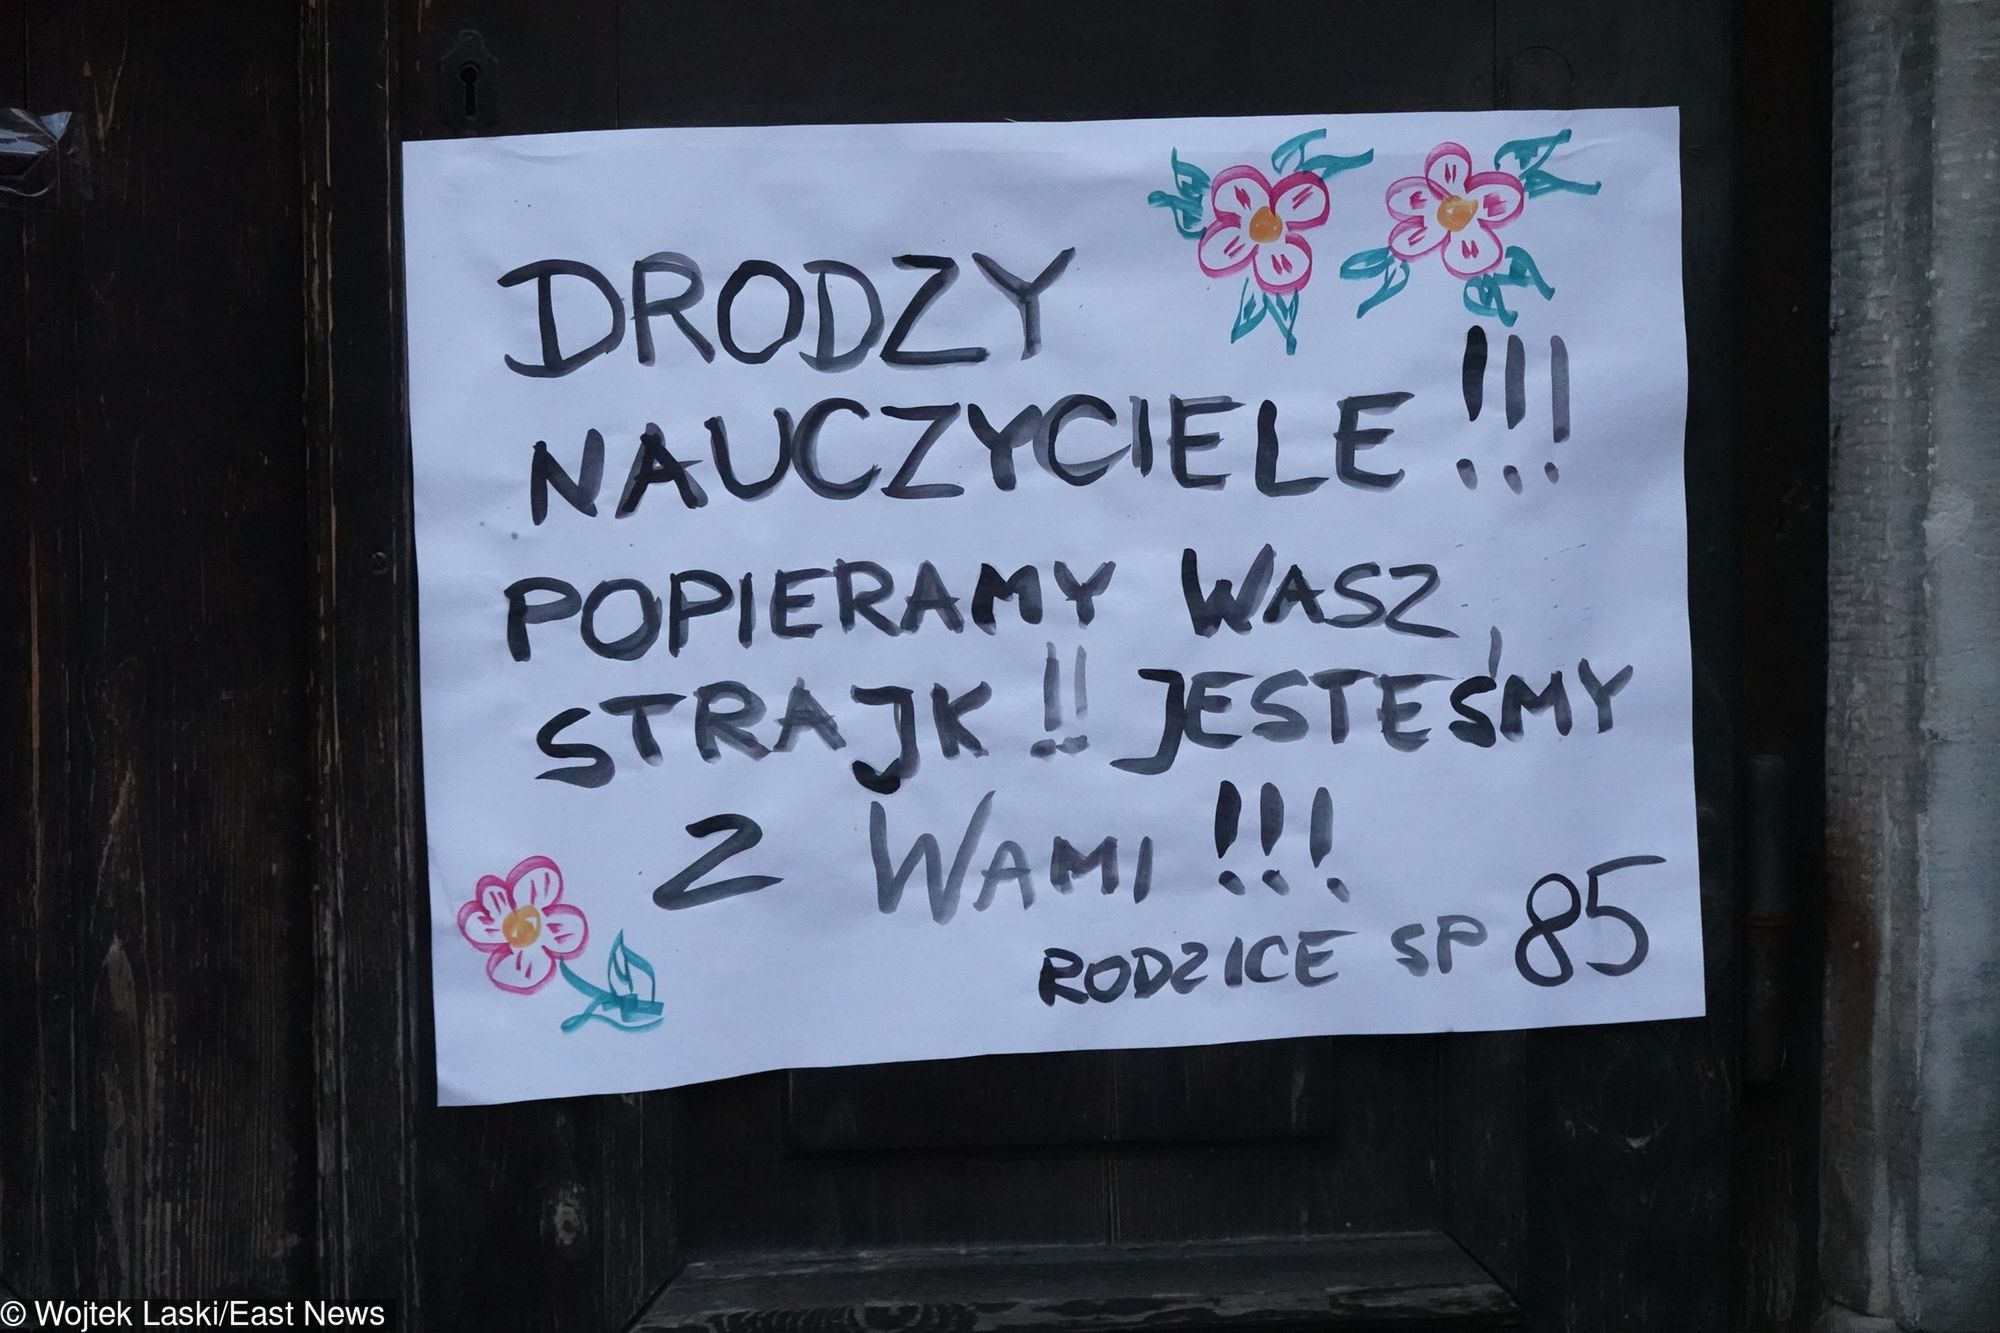 DRODZY
NAUCZYCIELE !!!
POPIERAMY WASZ
STRAJK !! JESTEŚMY
Z WAMI !!!
RODZICE SP 85
© Wojtek Laski/East News